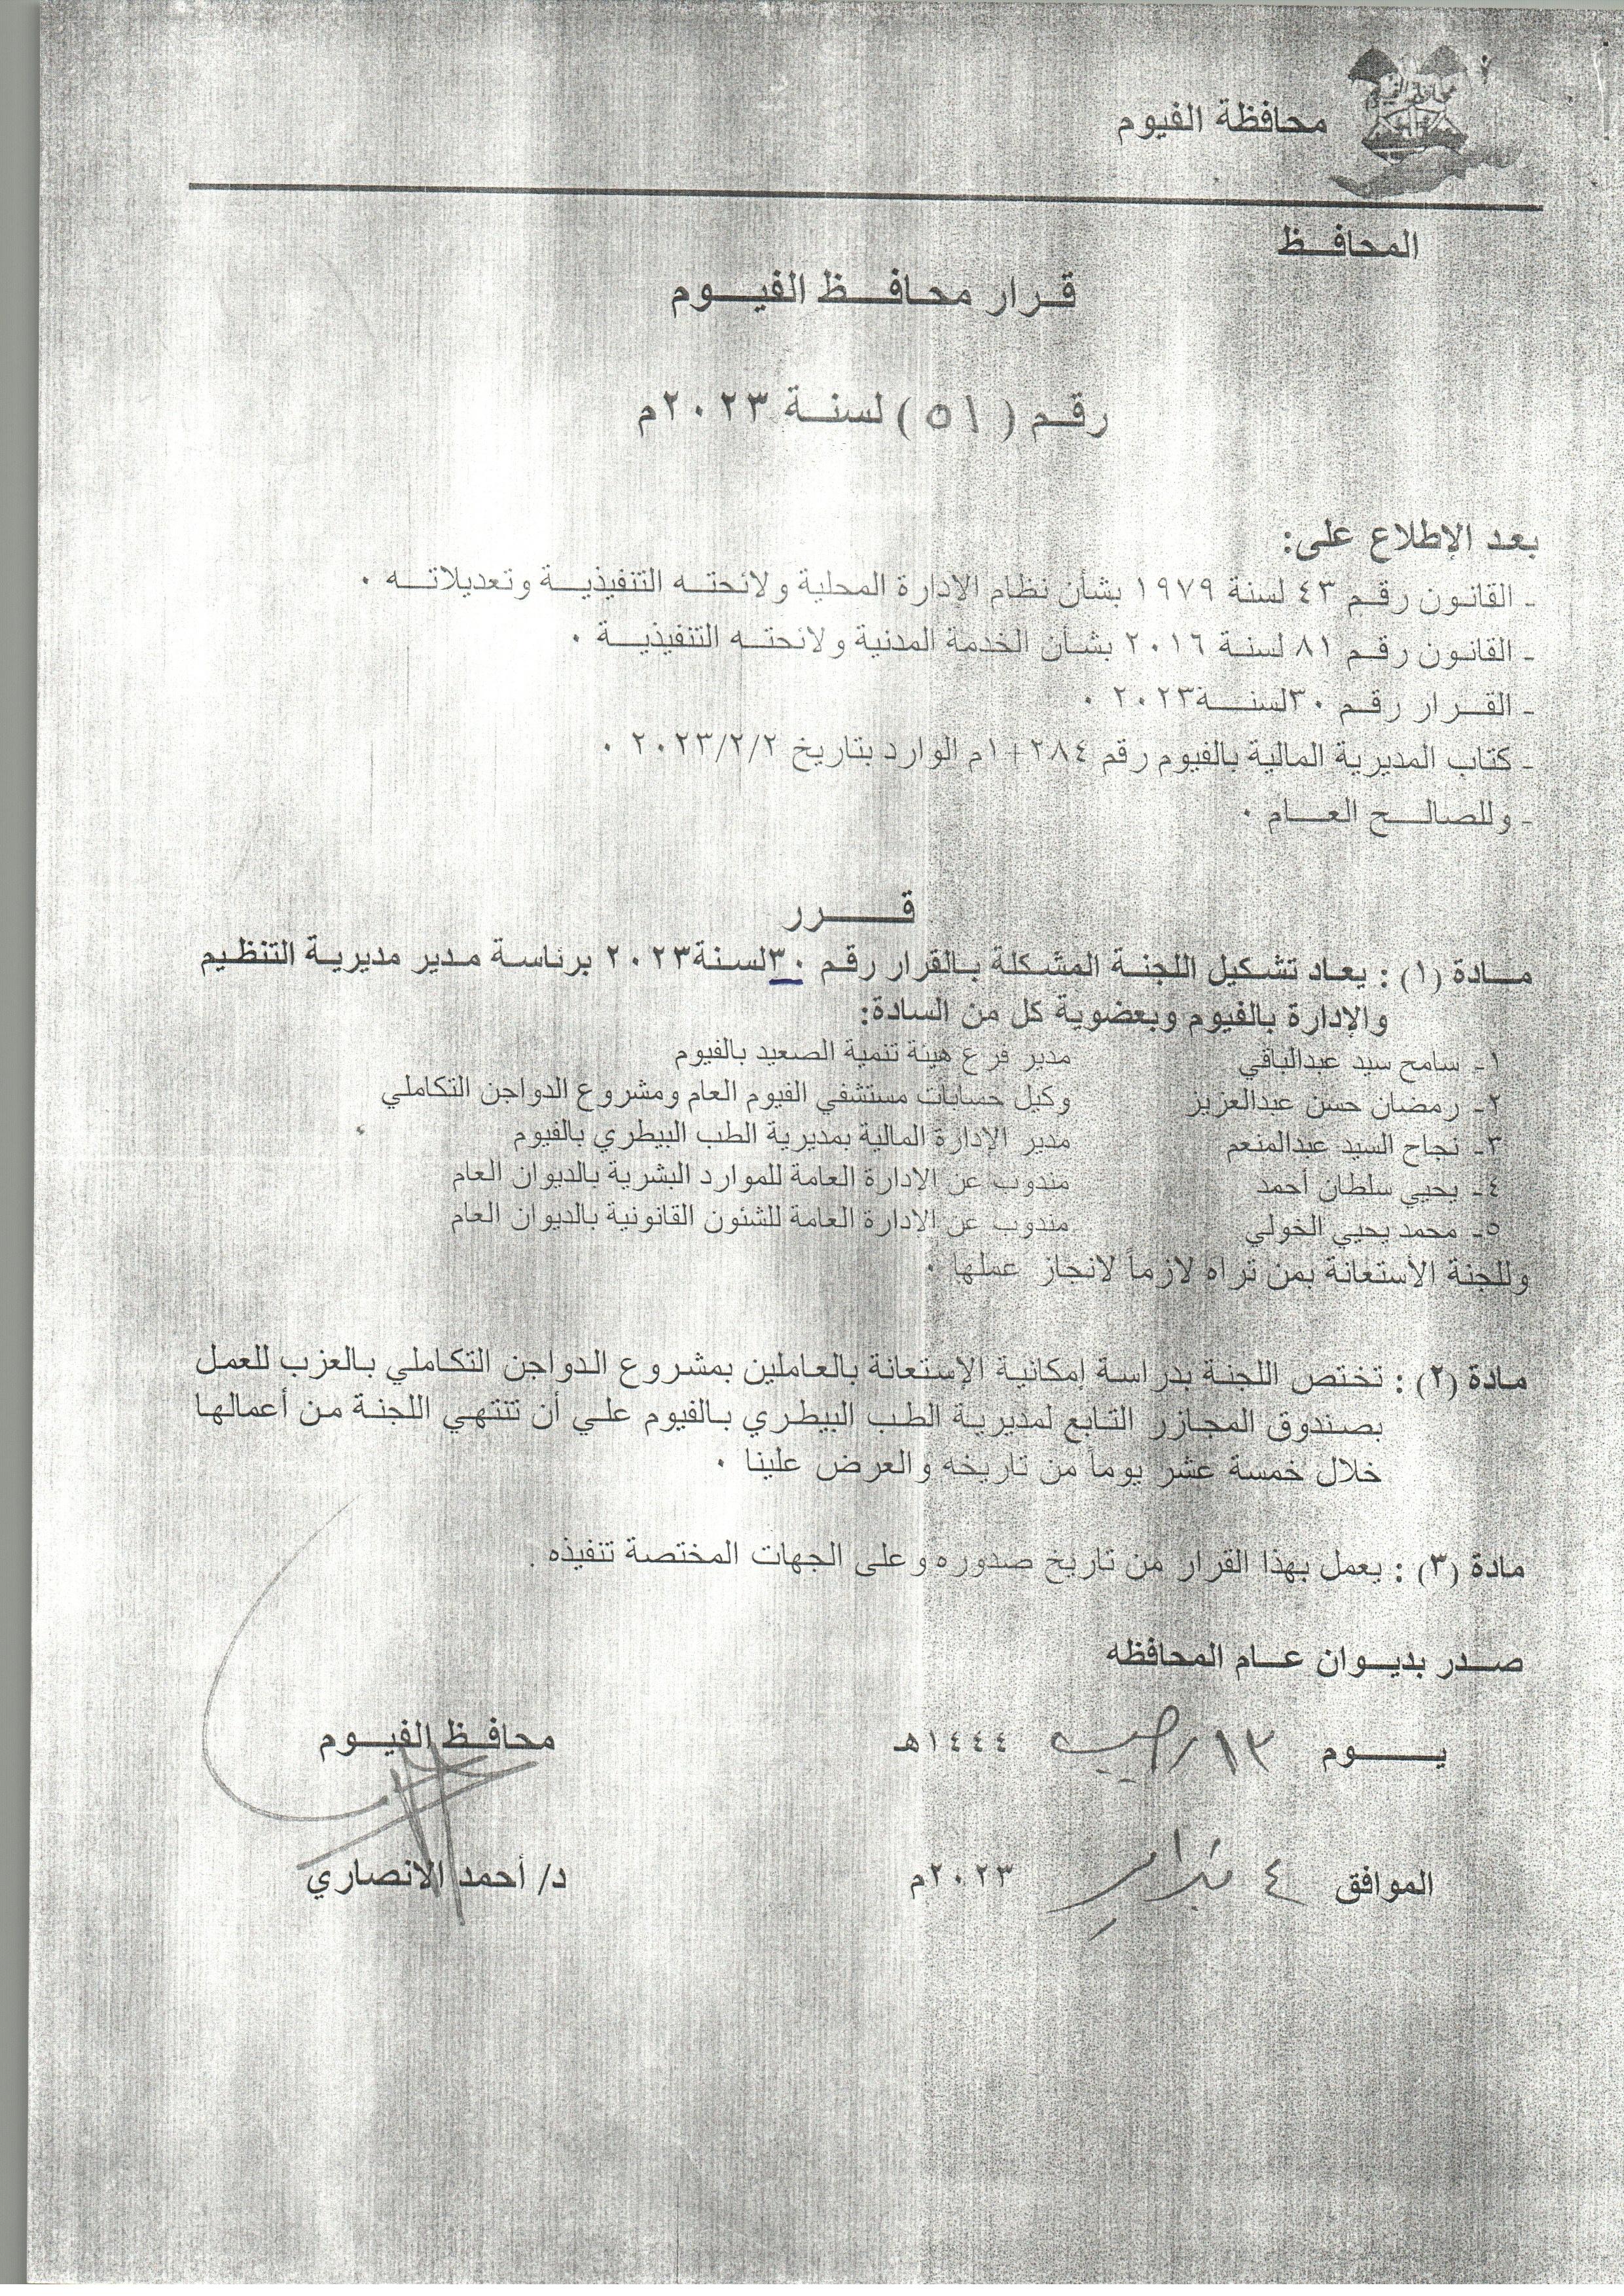 محافظة الفيوم
محافظة الفيوم
المحافـــظ
قـرار محافـــظ الفيـــوم
رقـم ( ٥١ ) لسنـــة ٢٠٢٣م
بعد الإطلاع على:
- القانون رقم ٤٣ لسنة ١٩٧٩ بشأن نظام الإدارة المحلية ولائحته التنفيذية وتعديلاته .
- القانون رقم ٨١ لسنة ٢٠١٦ بشأن الخدمة المدنية ولائحته التنفيذية .
- القرار رقم ٣٠ لسنة ٢٠٢٣ .
- كتاب المديرية المالية بالفيوم رقم ٢٨٤+١م الوارد بتاريخ ٢٠٢٣/٢/٢ .
- وللصالح العام .
قـــــرر
مادة (١) : يعاد تشكيل اللجنة المشكلة بالقرار رقم ٣٠لسنة٢٠٢٣ برئاسة مدير مديرية التنظيم
والإدارة بالفيوم وبعضوية كل من السادة:
١- سامح سيد عبدالباقي مدير فرع هيئة تنمية الصعيد بالفيوم
٢- رمضان حسن عبدالعزيز وكيل حسابات مستشفي الفيوم العام ومشروع الدواجن التكاملي
٣- نجاح السيد عبدالمنعم مدير الإدارة المالية بمديرية الطب البيطري بالفيوم
٤- يحيي سلطان أحمد مندوب عن الادارة العامة للموارد البشرية بالديوان العام
٥- محمد يحيي الخولي مندوب عن الادارة العامة للشئون القانونية بالديوان العام
وللجنة الأستعانة بمن تراه لازماً لانجاز عملها .
مادة (٢) : تختص اللجنة بدراسة إمكانية الإستعانة بالعاملين بمشروع الدواجن التكاملي بالعزب للعمل
بصندوق المجازر التابع لمديرية الطب البيطري بالفيوم علي أن تنتهي اللجنة من أعمالها
خلال خمسة عشر يوماً من تاريخه والعرض علينا .
مادة (٣) : يعمل بهذا القرار من تاريخ صدوره وعلى الجهات المختصة تنفيذه .
صـدر بديـوان عـام المحافظه
يـــــوم ١٣ رجب ١٤٤٤هـ
محافـظ الفيـــوم
الموافق ٤ فبراير ٢٠٢٣م
د/ أحمد الانصاري